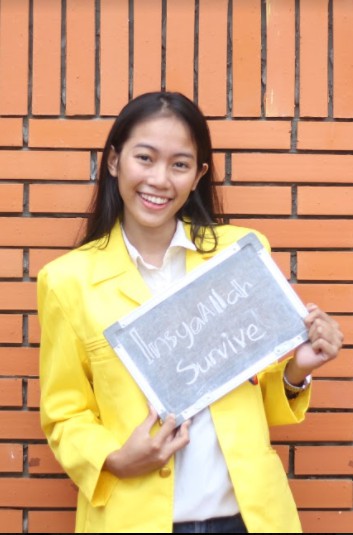 InsyaAllah
Survive!